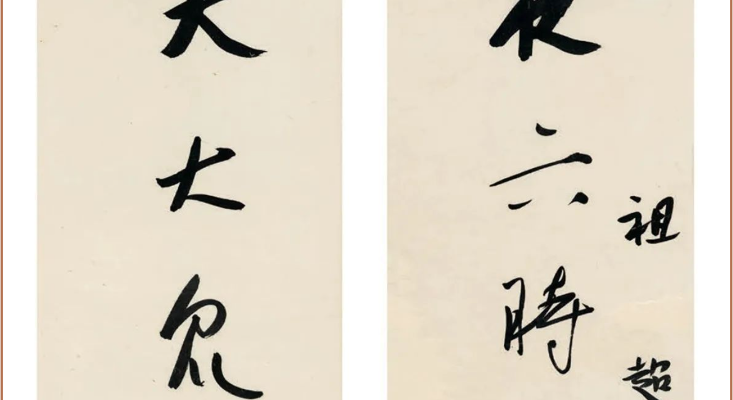 祖超
夜六時
天大眾